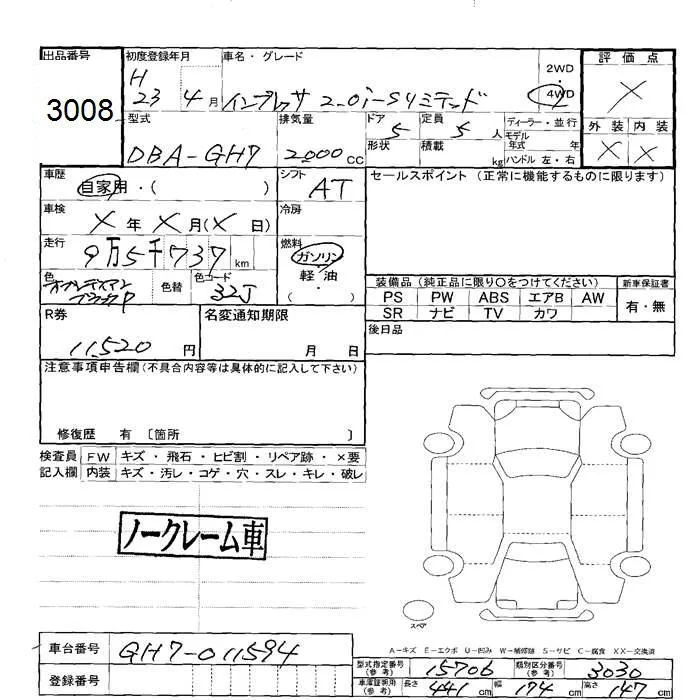 出品番号
3008
初度登録年月
H
23 4月
車名・グレード
インプレッサ 2.0i-Sリミテッド
2WD
4WD
評価点
×
型式
DBA-GH7
排気量
2000cc
ドア
5
定員
5人
ディーラー・並行
モデル
年式 年
形状
積載
kg
ハンドル 左・右
外装 内装
× ×
車歴
自家用・( )
シフト
AT
セールスポイント (正常に機能するものに限ります)
車検
×年×月(×日)
冷房
走行
9万5千737km
燃料
ガソリン
軽油
・
( )
色
色替
色コード
32J
装備品 (純正品に限り○をつけてください)
新車保証書
PS PW ABS エアB AW
SR ナビ TV カワ
有・無
R券
11,520円
名変通知期限
月 日
後日品
注意事項申告欄(不具合内容等は具体的に記入して下さい)
修復歴 有 〔箇所 〕
検査員 FW キズ・飛石・ヒビ割・リペア跡・×要
記入欄 内装 キズ・汚レ・コゲ・穴・スレ・キレ・破レ
ノークレーム車
スペア
A-キズ E-エクボ U-凹み W-補修跡 S-サビ C-腐食 XX-交換済
車台番号
GH7-011594
登録番号
型式指定番号
(参考)
15706
類別区分番号
(参考)
3030
車庫証明用
(参考)
長さ 441cm 幅 174cm 高さ 147cm